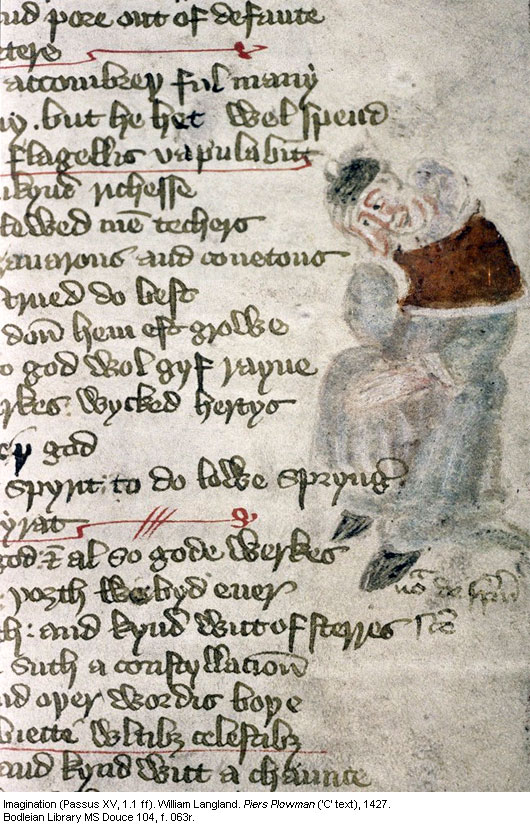 nd pore out of defaute
tere
accombrey ful many
ny . but he het wel spend
flagellis vapulabit
kynd richesse
lewed me techers
auarous and couetous
do best
don hem est growe
o god wol gyf rayne
rkes wycked hertys
god
spyrit to do lowe spryng
yrat
god : & al so gode werkes
: porth ve byd euer
th : and kynd witt of sterres
such a constyllacion
nd oþer wordis boþe
celestibz
and kynd witt a chaunte
Imagination (Passus XV, 1.1 ff). William Langland. Piers Plowman ('C' text), 1427.
Bodleian Library MS Douce 104, f. 063r.